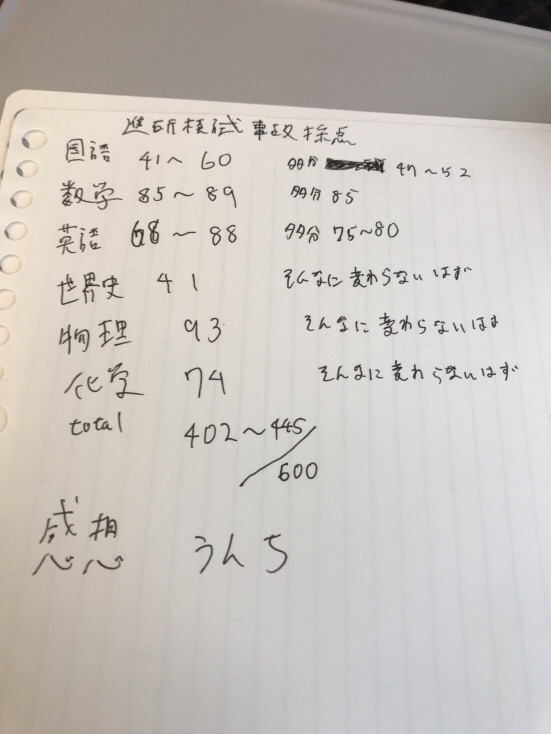 進研模試 事故採点
国語 41〜60 多分 47〜52
数学 85〜89 多分 85
英語 68〜88 多分 75〜80
世界史 41 そんなに変わらないはず
物理 93 そんなに変わらないはず
化学 74 そんなに変わらないはず
total 402〜445/600
感想 うんち